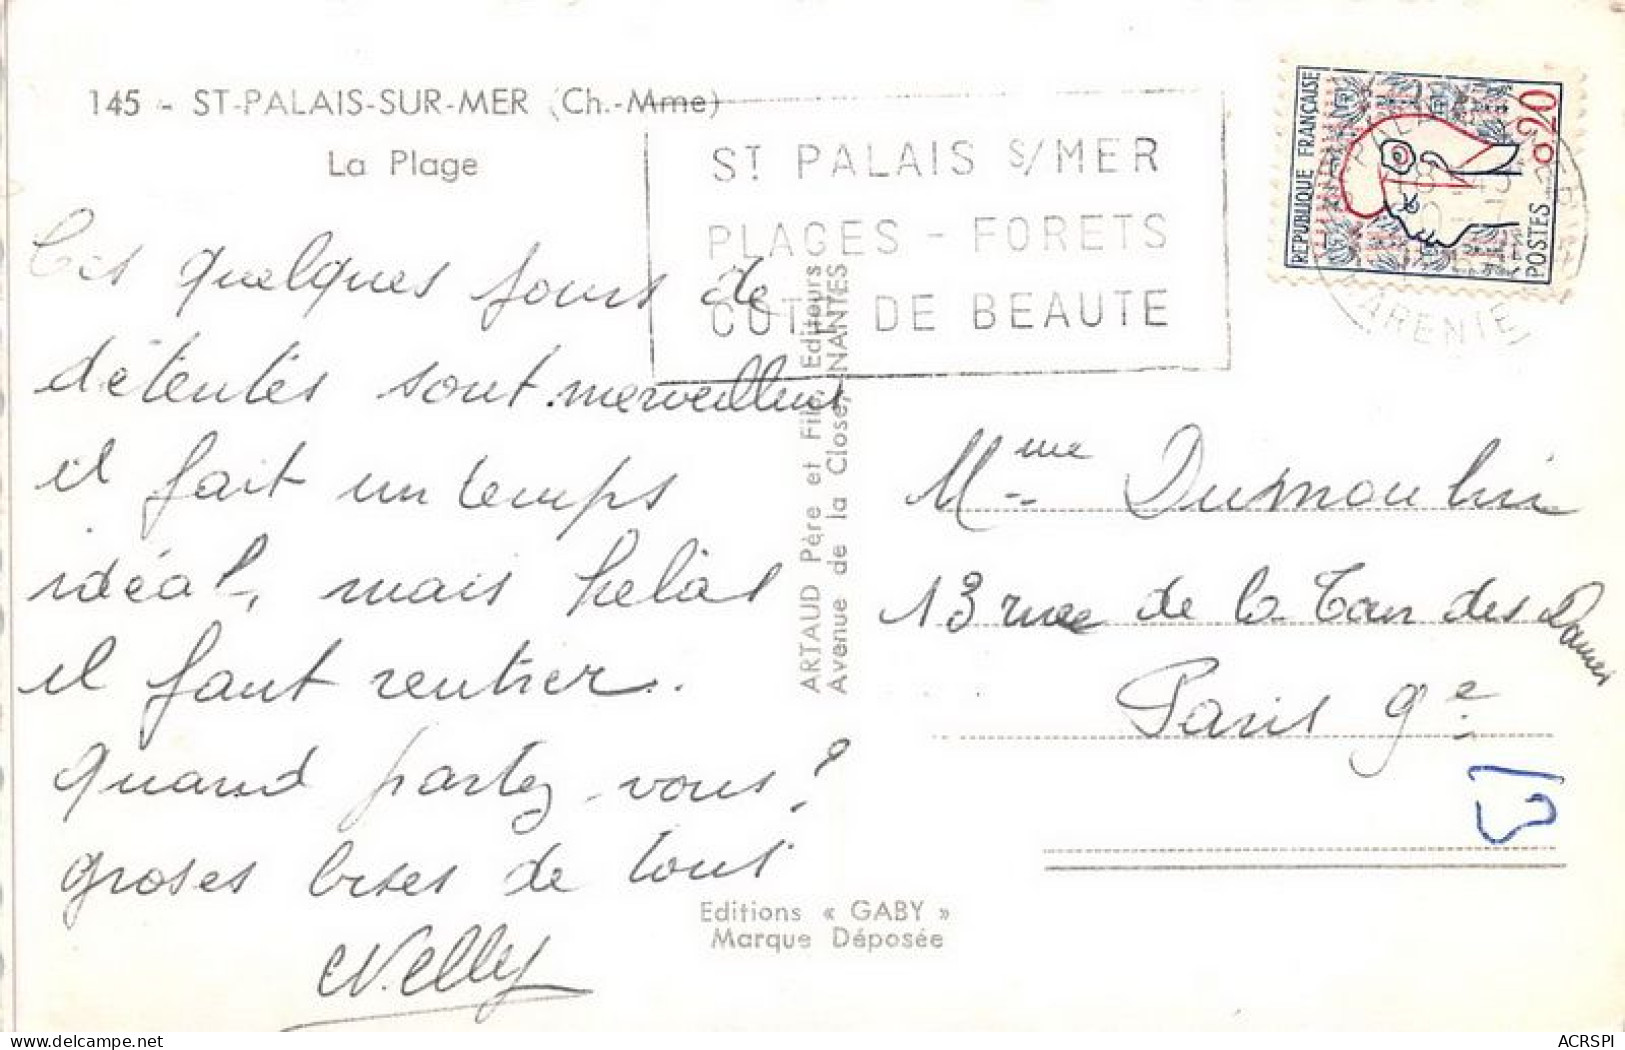 145 - ST-PALAIS-SUR-MER (Ch.-Mme)
La Plage
ST PALAIS S/MER
PLAGES - FORETS
COTE DE BEAUTE
REPUBLIQUE FRANÇAISE
0,20
POSTES
Ces quelques jours de
détentes sont merveilleux
il fait un temps
idéal, mais hélas
il faut rentrer.
quand partez-vous?
groses bises de tous
Nelly
ARTAUD Père et Fils, Editeurs
Avenue de la Close, NANTES
Mme Dumoulin
13 rue de la Tour des Dames
Paris 9e
Editions « GABY »
Marque Déposée
ACRSPI